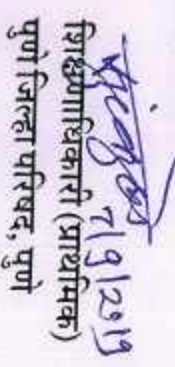 7/9/2019
शिक्षणाधिकारी (प्राथमिक)
पुणे जिल्हा परिषद, पुणे